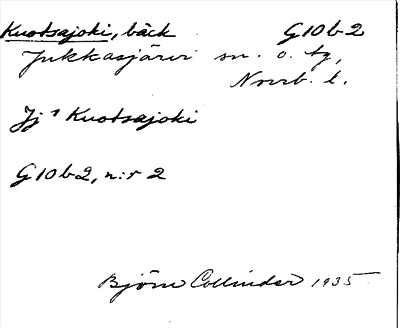 Kuotsajoki, bäck G10b2
Jukkasjärvi sn. o. tg,
Norrb. l.
Jj ¹ Kuotsajoki
G10b2, n:r 2
Björn Collinder 1935